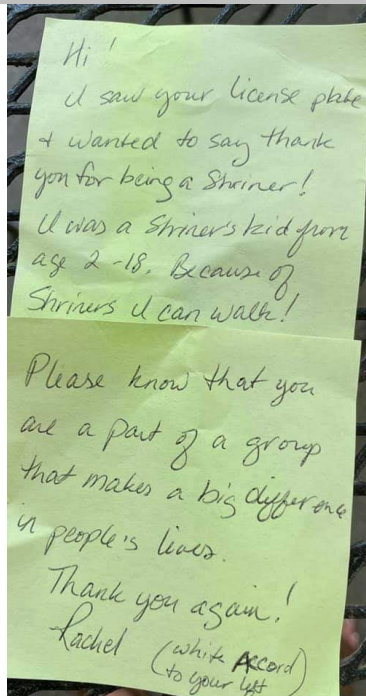 Hi!
I saw your license plate
+ wanted to say thank
you for being a Shriner!
I was a Shriner's kid from
age 2-18. Because of
Shriners I can walk!
Please know that you
are a part of a group
that makes a big difference
in people's lives.
Thank you again!
Rachel (white Accord)
to your left